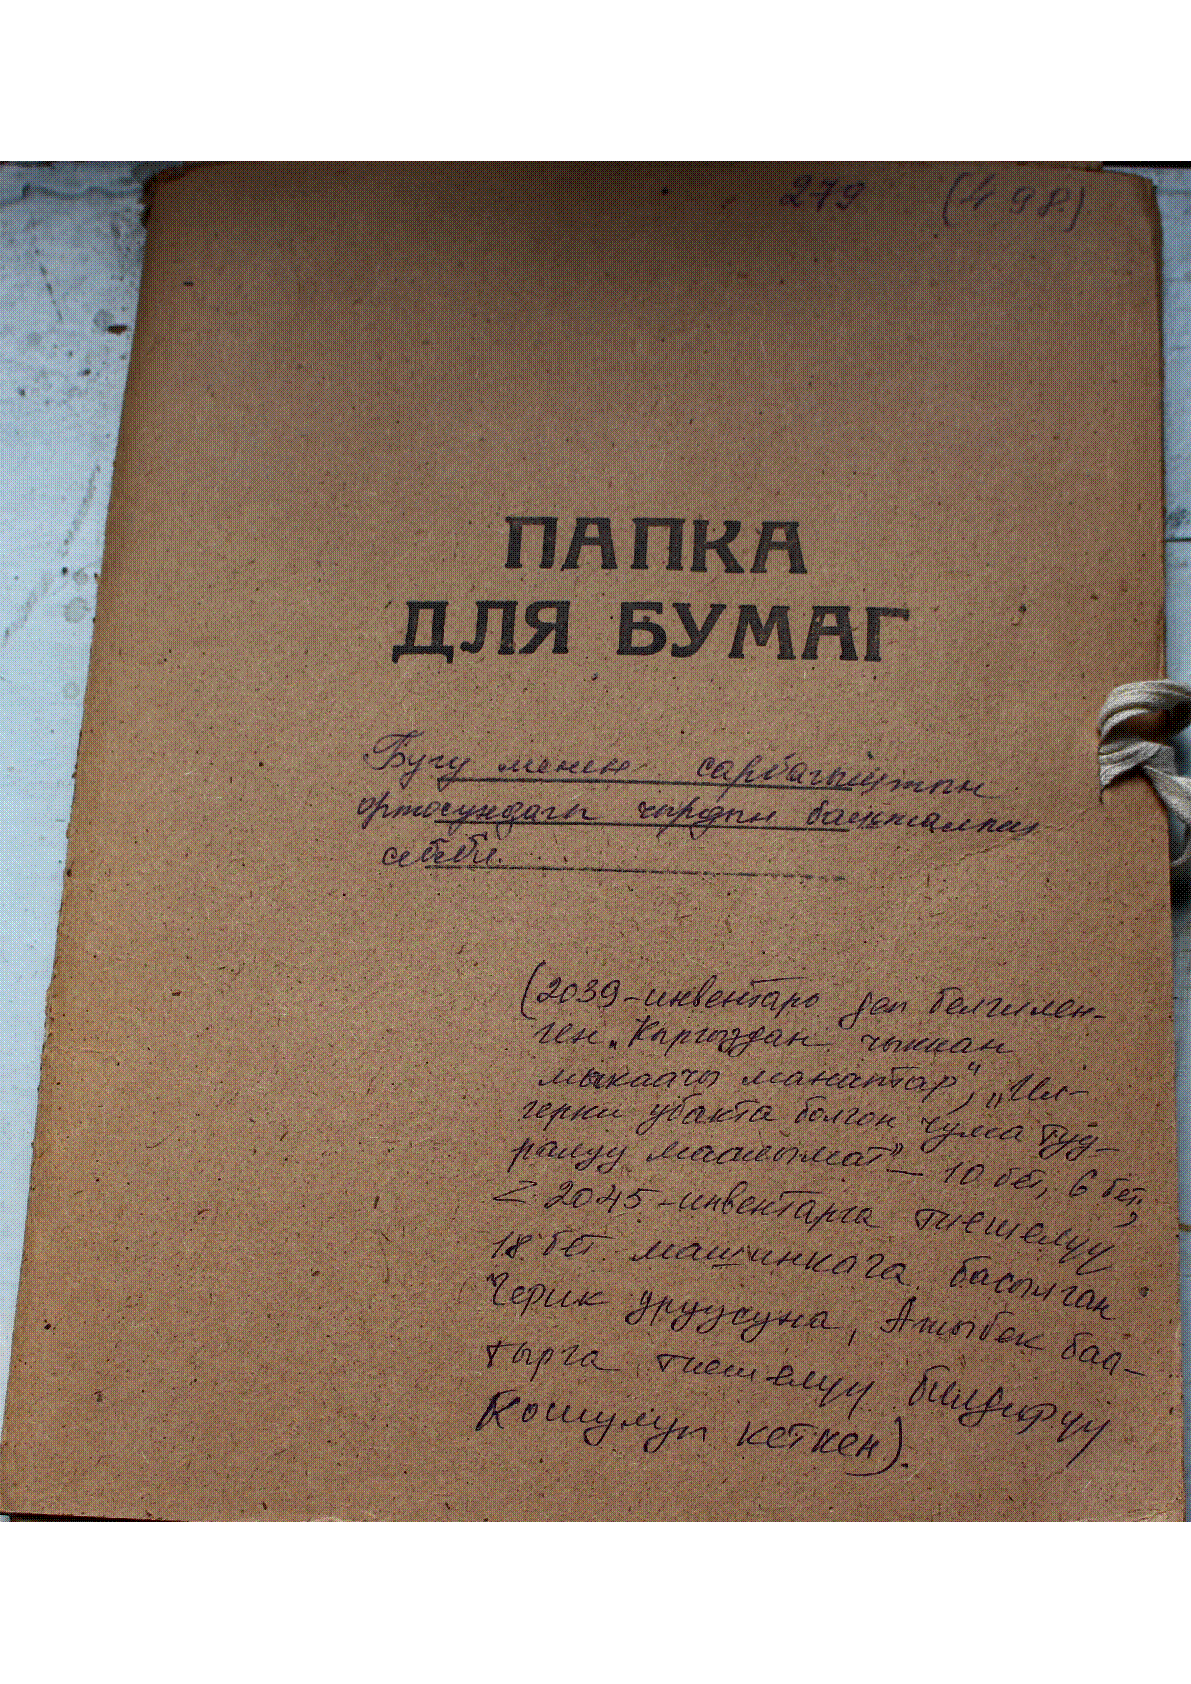 279 (498)
ПАПКА
ДЛЯ БУМАГ
Бугу менен сарбагыштын
ортосундагы чырдын башталыш
себеби.
(2039-инвентарь деп белгилен-
ген „Кыргыздан чыккан
мыкаачы манаптар", „Ил-
герки убакта болгон чума туу-
ралуу маалымат" – 10 бет, 6 бет,
2045-инвентарга тиешелүү
18 бет машинкага басылган
Черик уруусуна, Ажыбек баа-
тырга тиешелүү билдирүү
кошулуп кеткен).